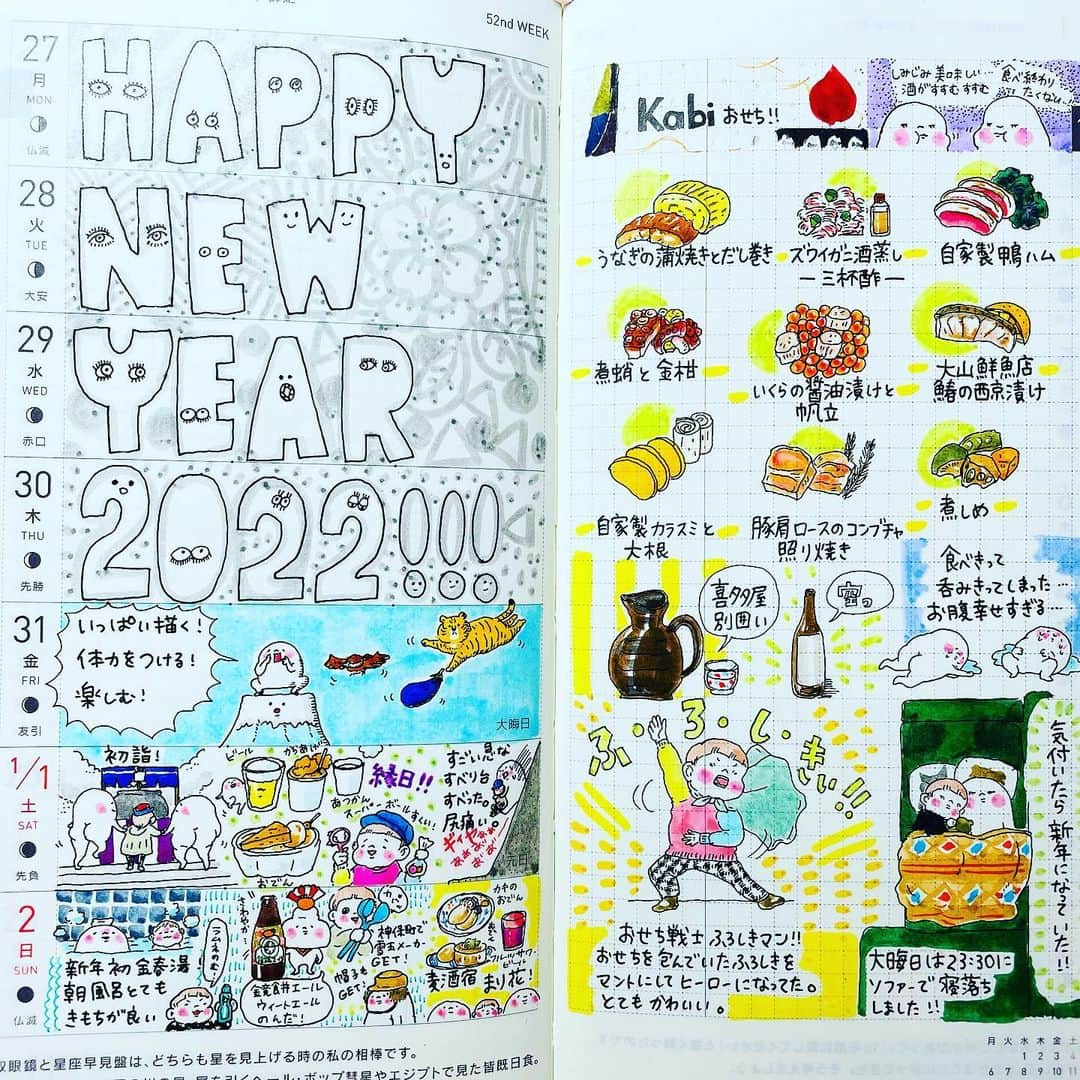 52nd WEEK
27
月
MON
仏滅
HAPPY
28
火
TUE
大安
NEW
29
水
WED
赤口
YEAR
30
木
THU
先勝
2022!!!
31
金
FRI
友引
いっぱい描く!
体力をつける!
楽しむ!
大晦日
1/1
土
SAT
先負
初詣!
ビール
からあげ
あつかん
縁日!!
スーパーボールすくい!
おでん
すごい急な
すべり台
すべった。
尻痛い。
ギィヤァ
元日
2
日
SUN
仏滅
新年初金春湯!
朝風呂とても
きもちが良い
ラムネのむ!
さわやか…
金婆倉井エール
ウィートエール
のんだ!
神保町で
雪玉メーカー
GET!
帽子も
GET!
カキの
おでん
フルーツサワー
麦酒宿 まり花!
双眼鏡と星座早見盤は、どちらも星を見上げる時の私の相棒です。
Kabi おせち!!
しみじみ美味しい…
酒がすすむすすむ
食べ終わり
たくない…
うなぎの蒲焼きとだし巻き
ズワイガニ酒蒸し
—三杯酢—
自家製鴨ハム
煮蛸と金柑
いくらの醤油漬けと
帆立
大山鮮魚店
鰆の西京漬け
自家製カラスミと
大根
豚肩ロースのコンブチャ
照り焼き
煮しめ
喜多屋
別囲い
食べきって
呑みきってしまった…
お腹幸せすぎる…
ふ・ろ・し・きぃ!!
おせち戦士 ふろしきマン!!
おせちを包んでいたふろしきを
マントにしてヒーローになってた。
とてもかわいい。
気付いたら新年になっていた!!
大晦日は23:30に
ソファーで寝落ち
しました!!
月 火 水 木 金 土
1 2 3 4
6 7 8 9 10 11